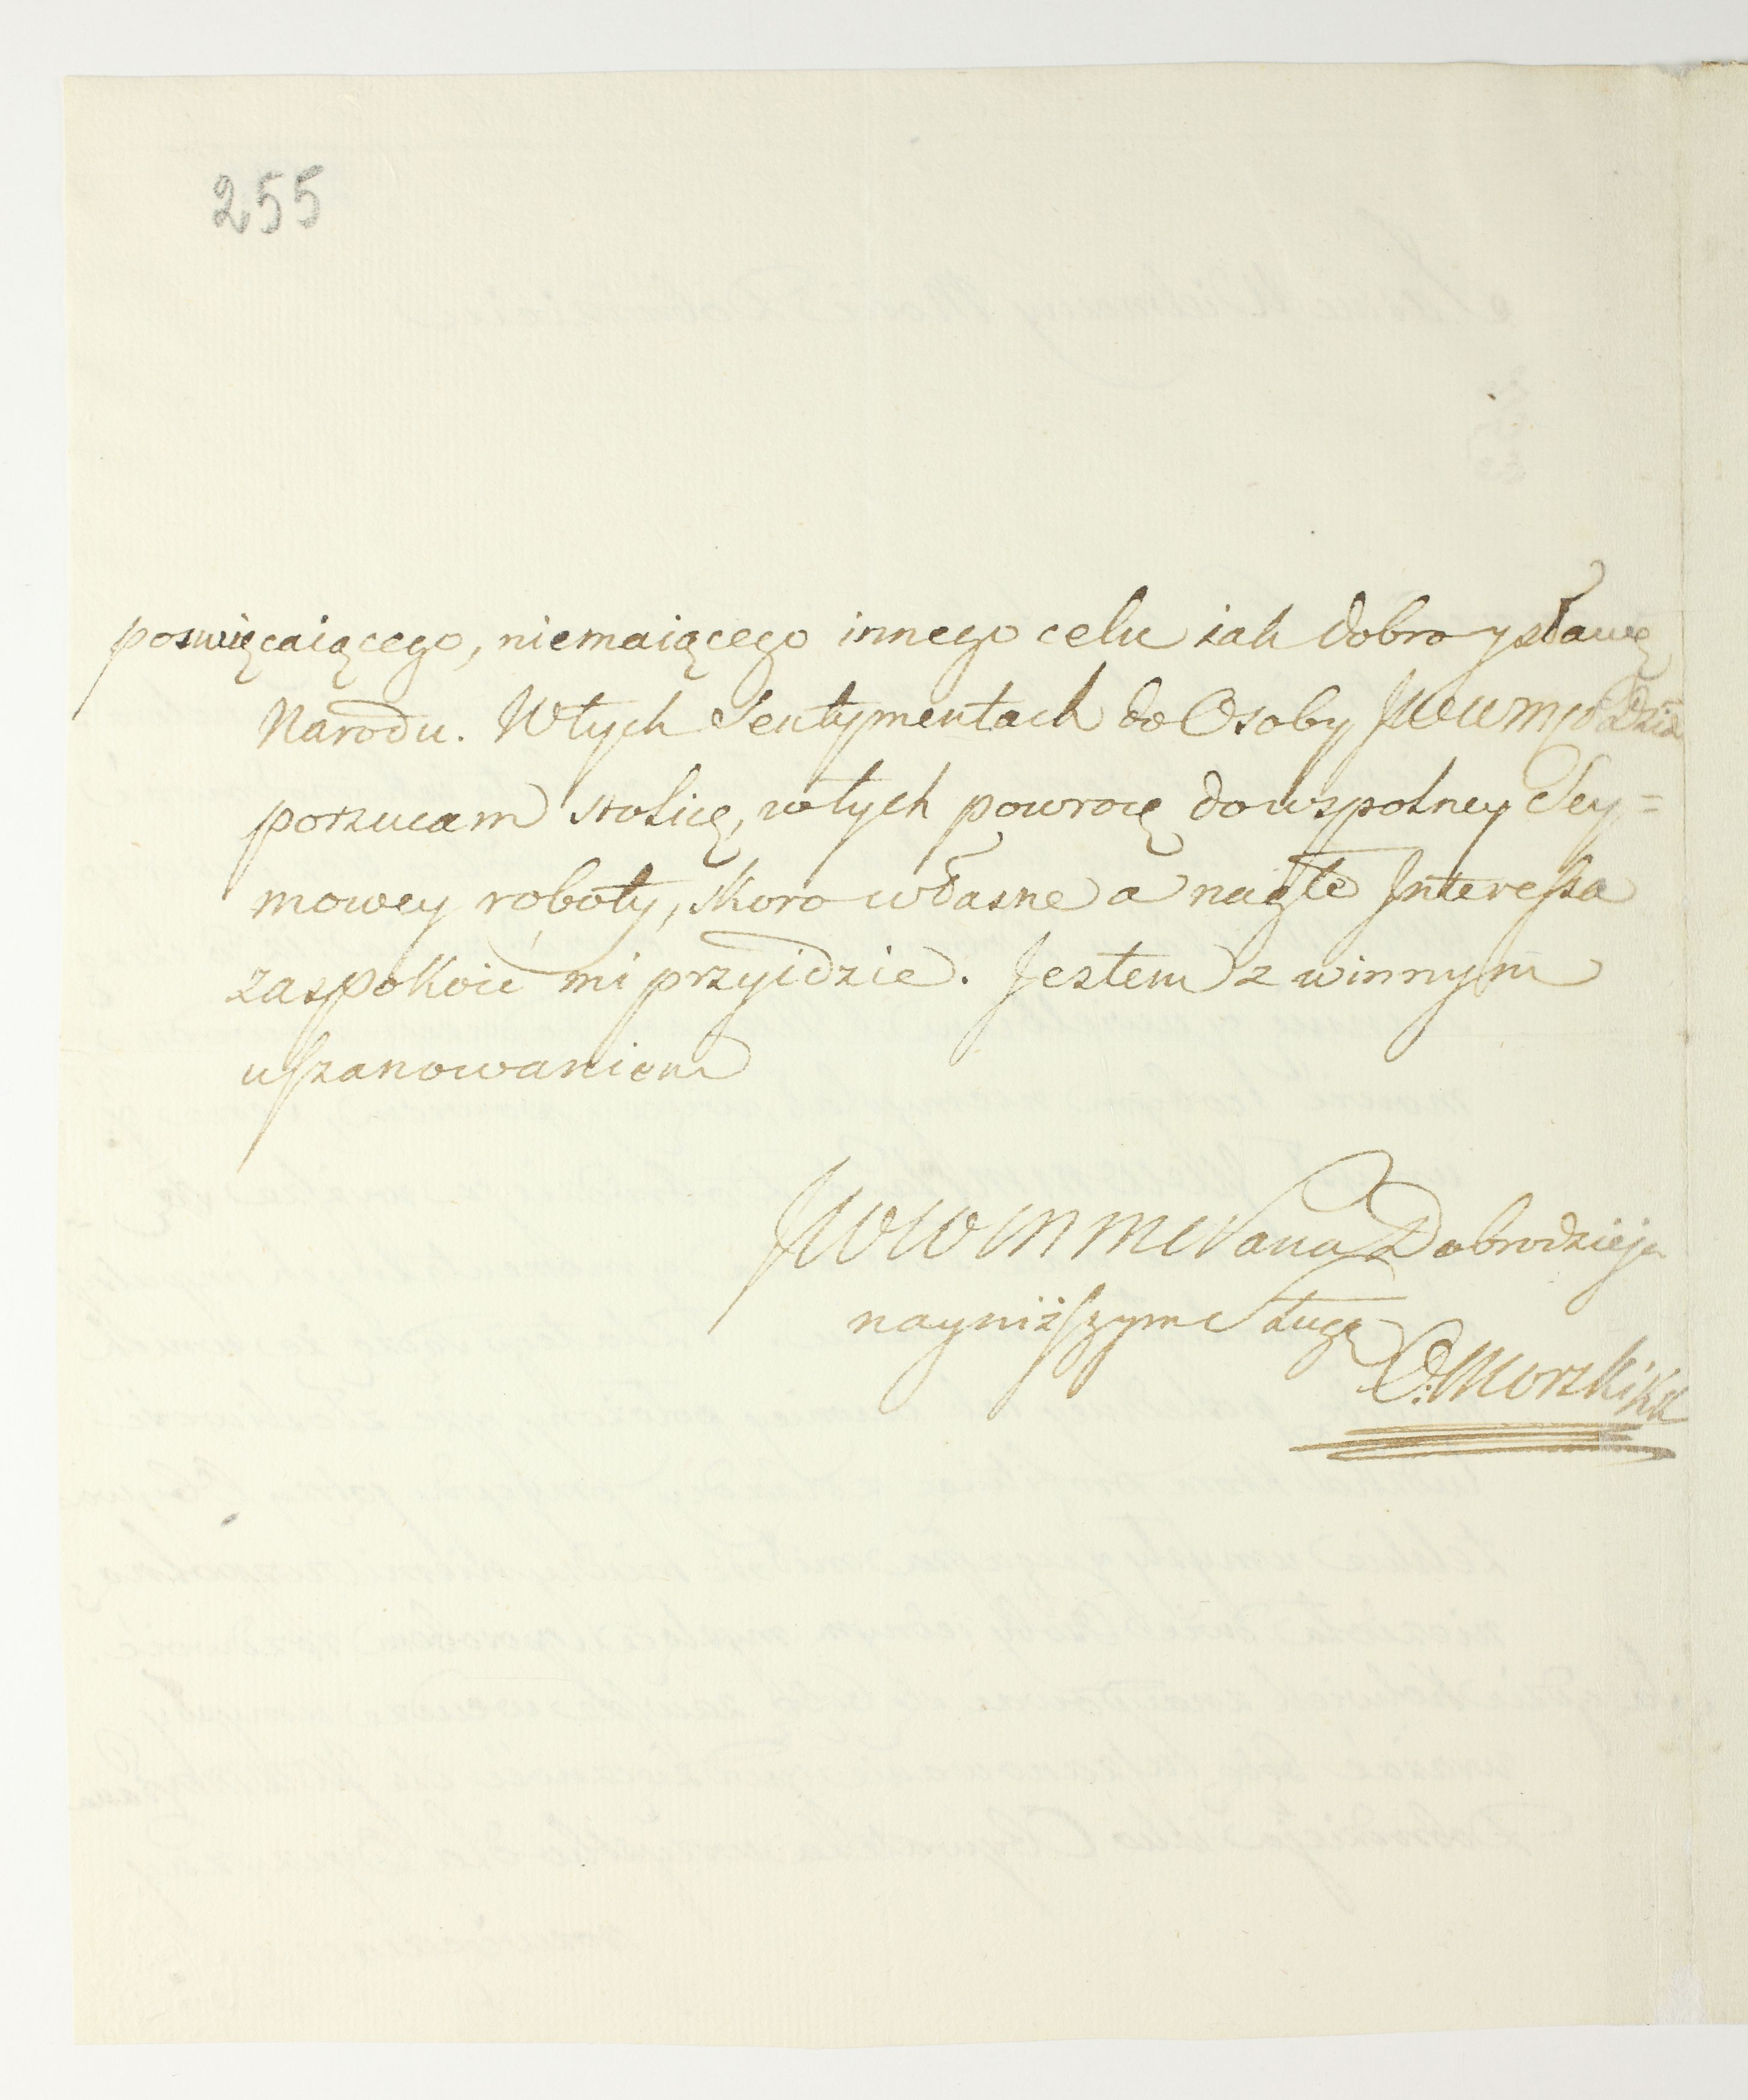 255
poswięcaiącego, niemaiącego innego celu iak dobro y sławę
Narodu. W tych Sentymentach do Osoby JWWMP Dzia
porzucam stolicę, w tych powrocę do wspolney Sey=
mowey roboty, skoro własne a nagłe Interessa
zaspokoić mi przyidzie. Jestem z winnym
uszanowaniem
JWWMM Pana Dobrodzieja
nayniższym Sługą
O: Morski